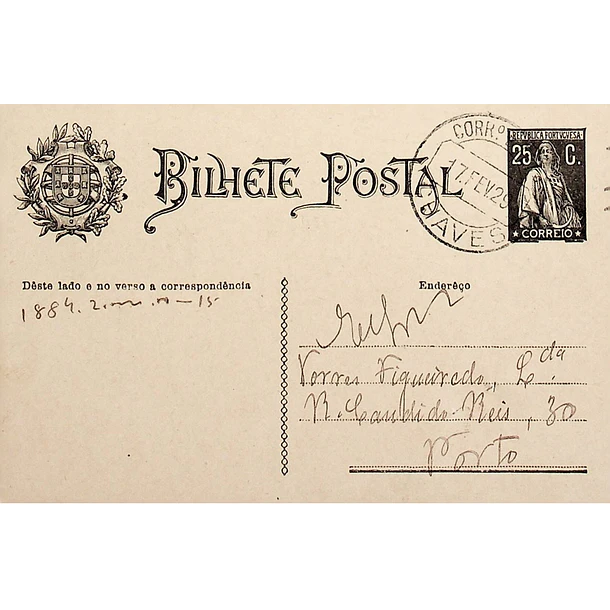 BILHETE POSTAL
CORR.º
17.FEV.29
CHAVES
REPVBLICA PORTVGVESA
25 C.
CORREIO
Dêste lado e no verso a correspondência
Enderêço
Torres Figueiredo, L.da
R. Candido Reis, 30
Porto